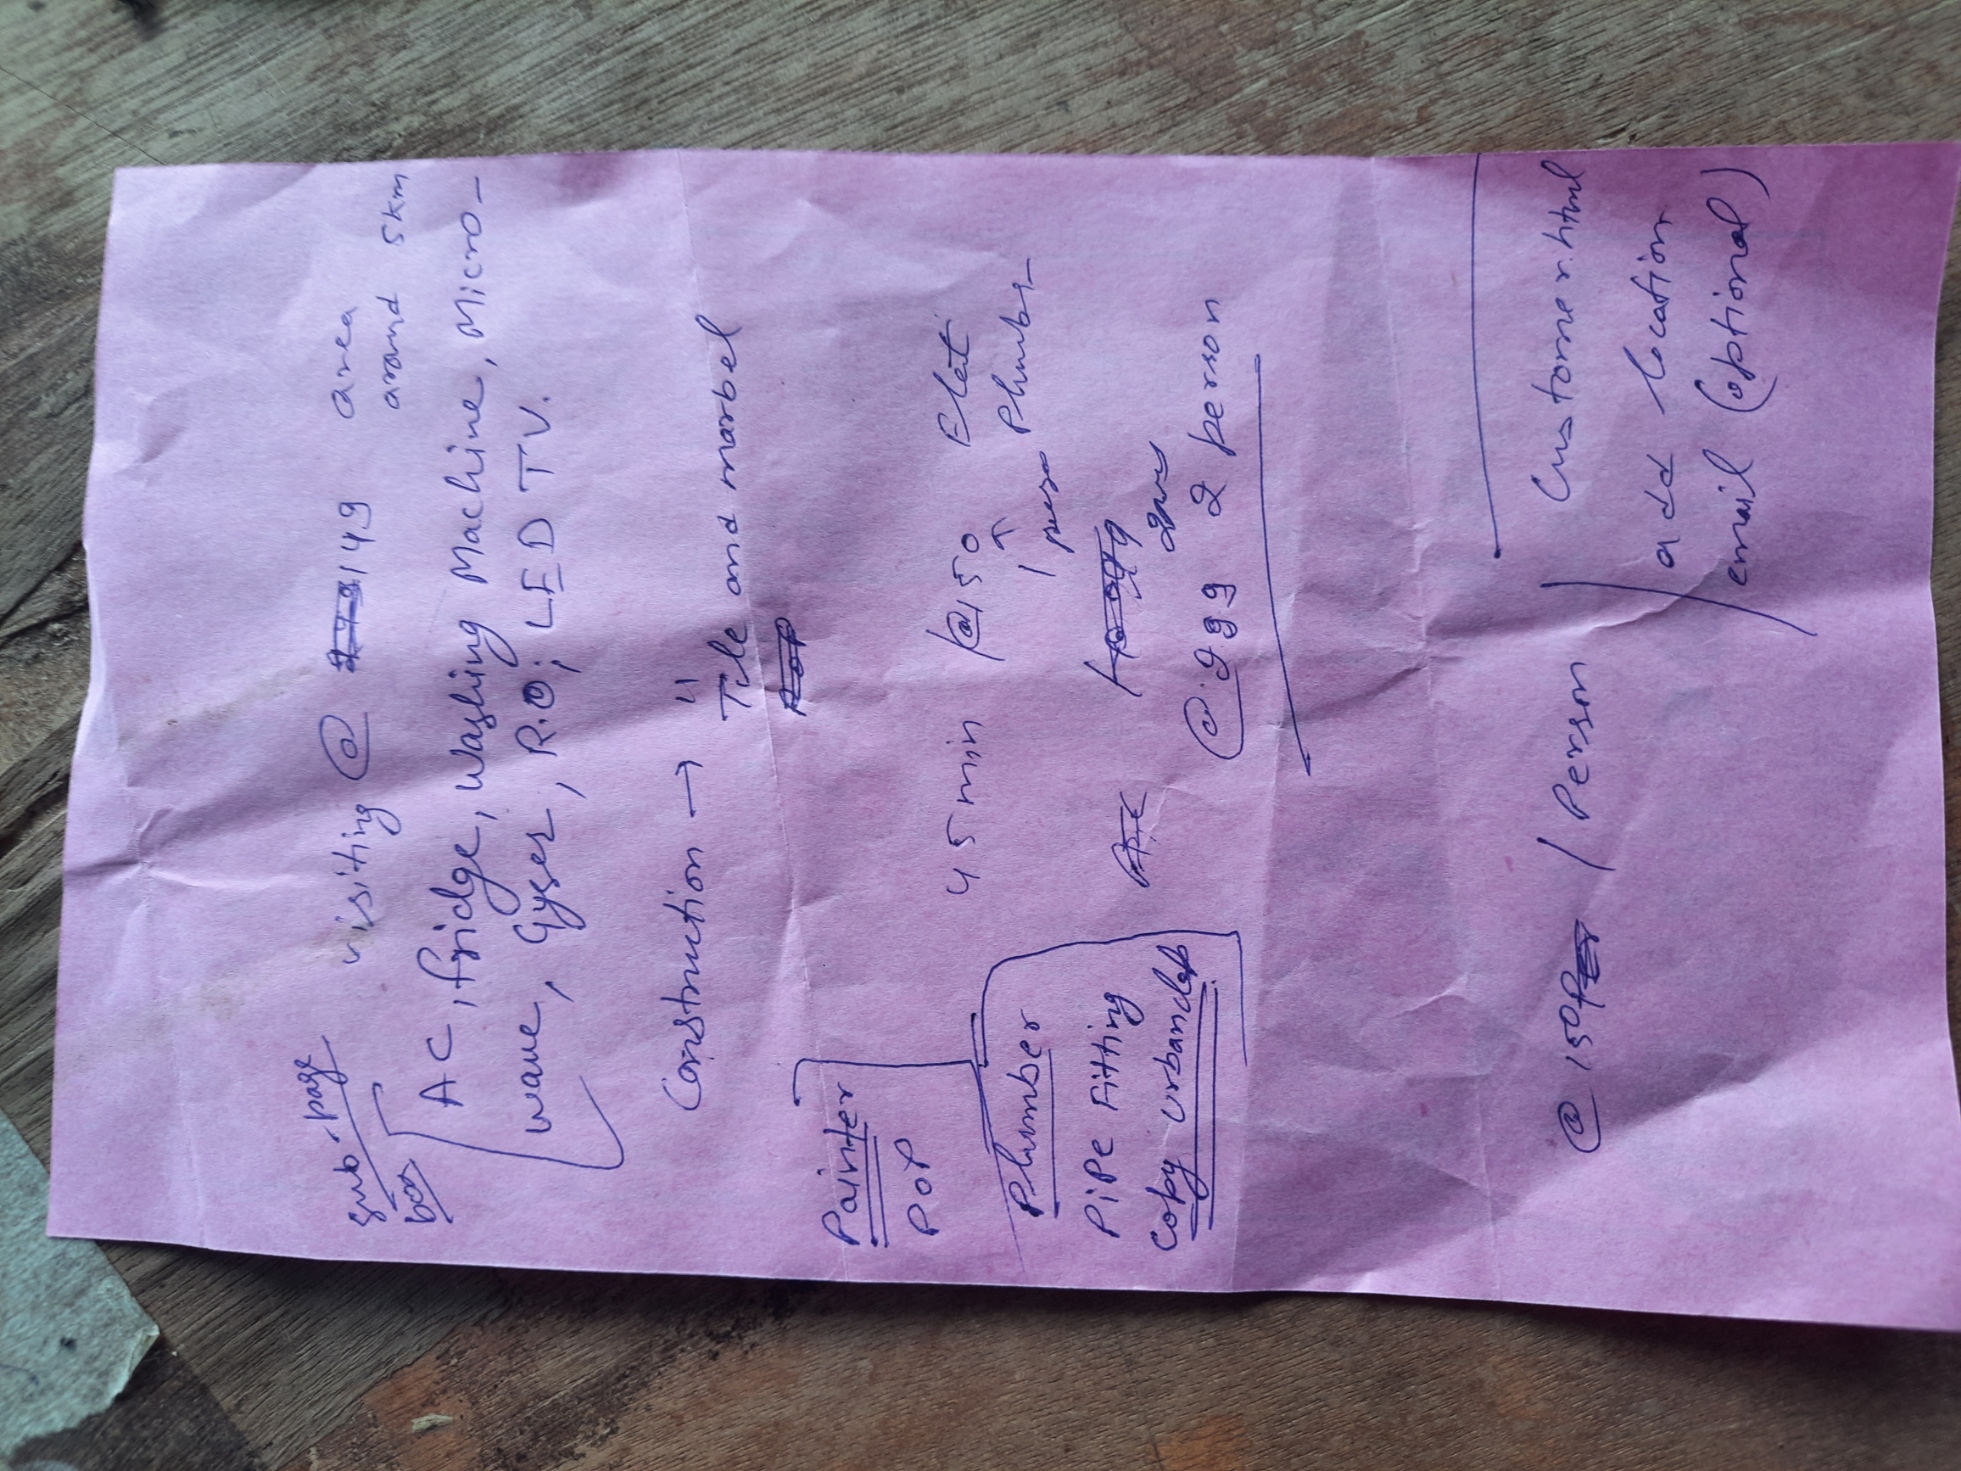 sub-page
box
visiting @ 149 area
around 5km
AC, fridge, Washing Machine, Micro-
wave, Gyser, R.O; LED TV.
Construction → "
Tile and marbel
POP
Painter
POP
45 min @150
1
Plumber
Pipe Fitting
Copy Urbanclap
@ 299 2 person
@ 150 / Person
Customer.html
add location
email (optional)